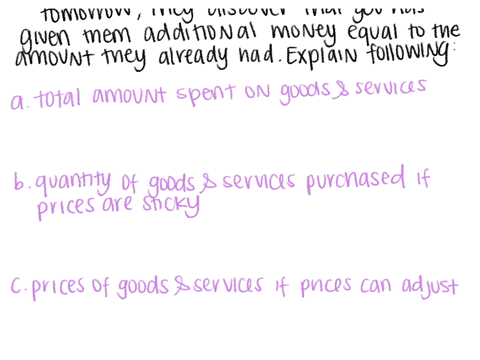 tomorrow, they discover that gov has
given them additional money equal to the
amount they already had. Explain following:
a. total amount spent on goods & services
b. quantity of goods & services purchased if
prices are sticky
c. prices of goods & services if prices can adjust